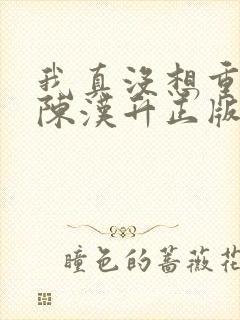 我真没想重
陳漢升正版
瞳色的蔷薇花